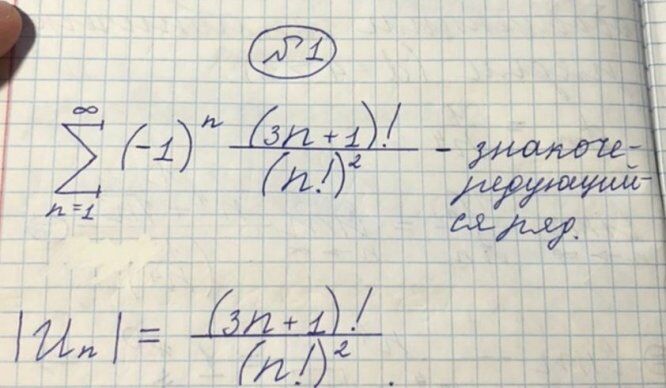 №1
∞
∑ (-1)^n (3n+1)! / (n!)^2 - знакоче-
n=1
редующий-
ся ряд.
|Un| = (3n+1)! / (n!)^2 .